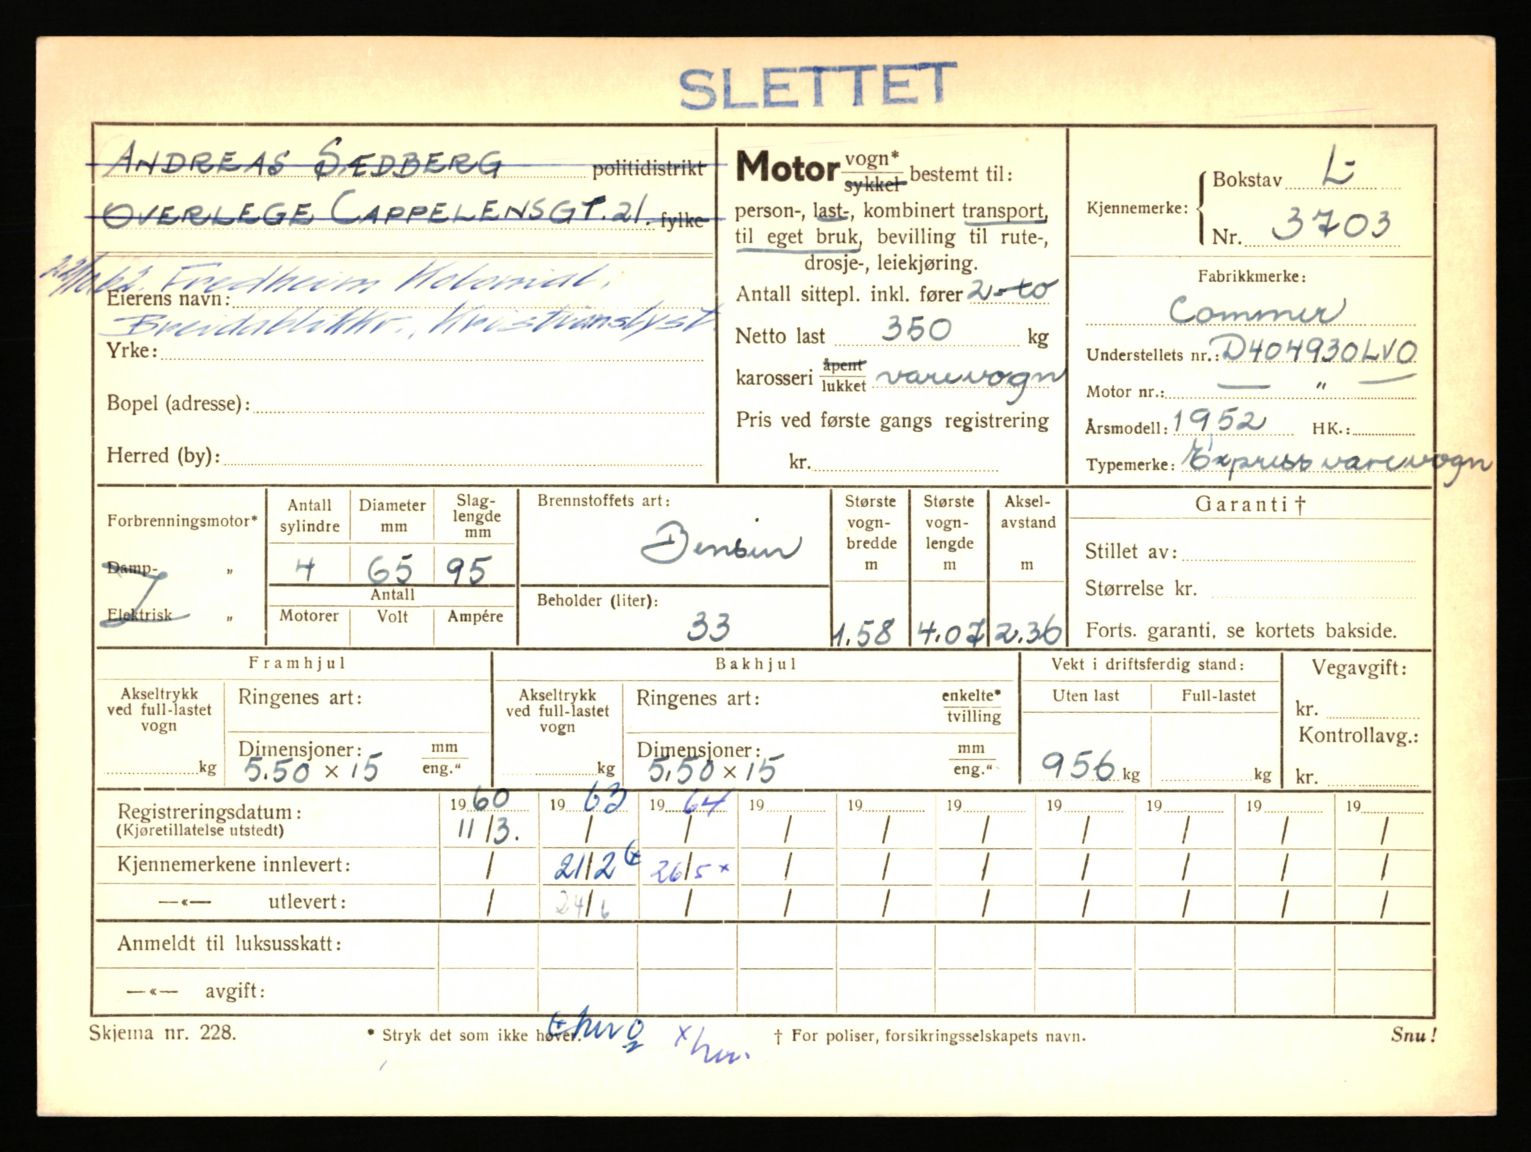 SLETTET
ANDREAS SÆDBERG politidistrikt
OVERLEGE CAPPELENSGT. 21. fylke
22/10.62. Fredheim Kolonial.
Eierens navn:
Breidablikkv., Kristianslyst
Yrke:
Bopel (adresse):
Herred (by):
Motor vogn* sykkel bestemt til:
person-, last-, kombinert transport,
til eget bruk, bevilling til rute-,
drosje-, leiekjøring.
Antall sittepl. inkl. fører 2-to
Netto last 350 kg
karosseri åpent lukket varevogn
Pris ved første gangs registrering
kr.
Kjennemerke: Bokstav L-
Nr. 3703
Fabrikkmerke:
Commer
Understellets nr.: D404930LVO
Motor nr.: — " —
Årsmodell: 1952 HK.:
Typemerke: Express varevogn
Forbrenningsmotor*
Damp- „
Elektrisk „
Antall sylindre Diameter mm Slag-lengde mm
4 65 95
Antall
Motorer Volt Ampére
Brennstoffets art:
Bensin
Beholder (liter):
33
Største vogn-bredde m
1.58
Største vogn-lengde m
4.07
Aksel-avstand m
2.36
Garanti †
Stillet av:
Størrelse kr.
Forts. garanti, se kortets bakside.
Framhjul
Akseltrykk ved full-lastet vogn
kg
Ringenes art:
Dimensjoner: mm
5.50 x 15 eng."
Bakhjul
Akseltrykk ved full-lastet vogn
kg
Ringenes art: enkelte* tvilling
Dimensjoner: mm
5.50 x 15 eng."
Vekt i driftsferdig stand:
Uten last Full-lastet
956 kg kg
Vegavgift:
kr.
Kontrollavg.:
kr.
Registreringsdatum: 1960 1963 1964 19 19 19 19 19 19 19
(Kjøretillatelse utstedt) 11/3. / / / / / / / / /
Kjennemerkene innlevert: / 21/2 26/5 x / / / / / / /
—«— utlevert: / 24/6 / / / / / / / /
Anmeldt til luksusskatt:
—«— avgift:
Skjema nr. 228. * Stryk det som ikke høver. x hv. † For poliser, forsikringsselskapets navn. Snu!